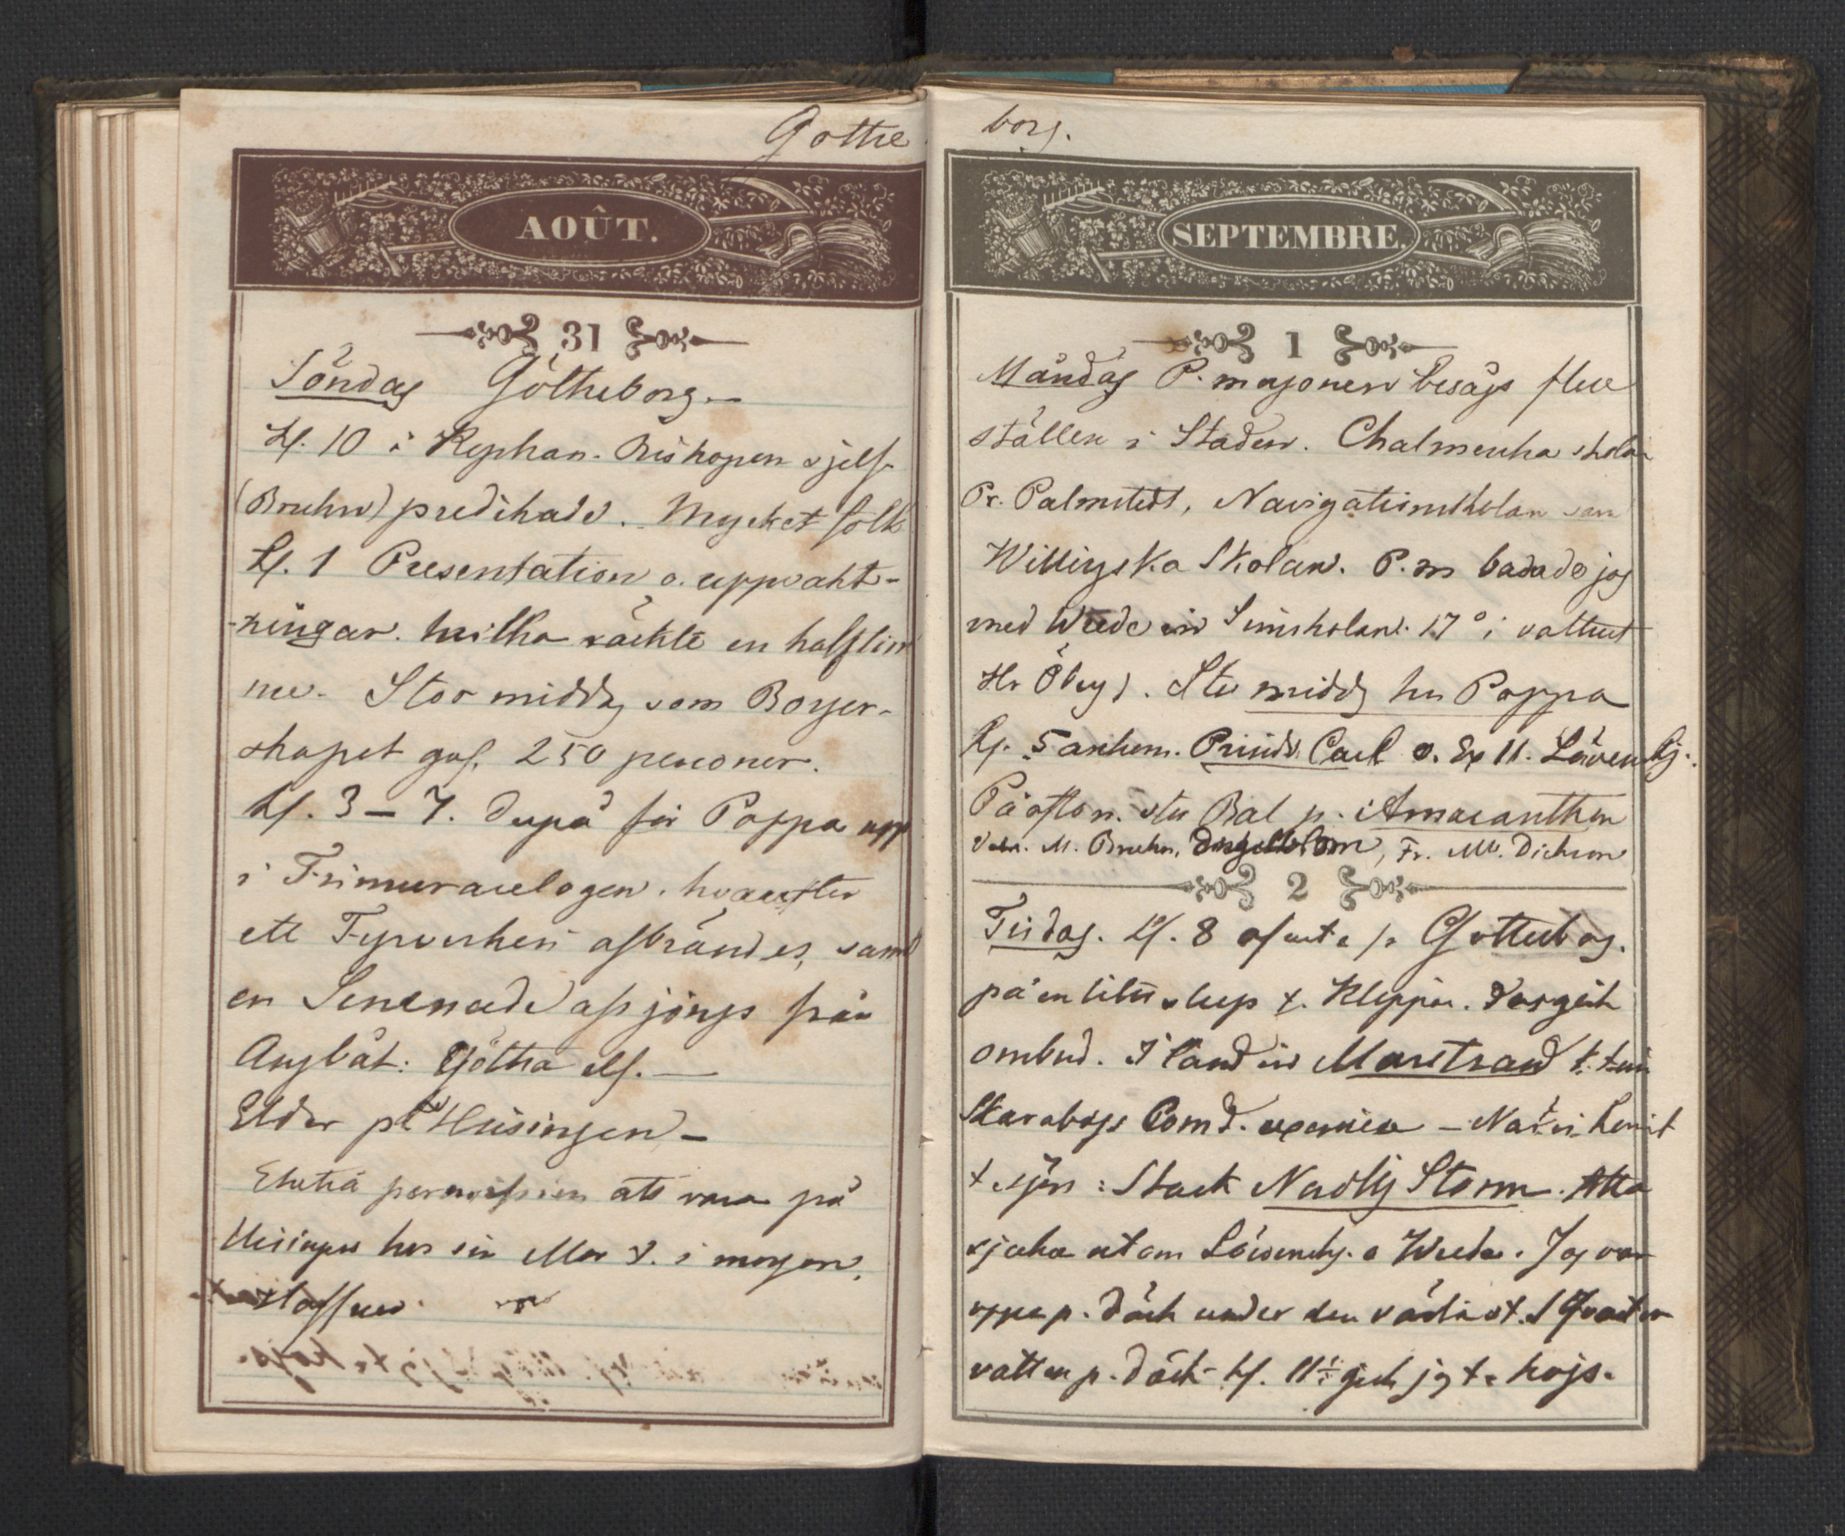 Gothe
AOÛT.
31
Söndag Götheborg.—
kl. 10 i Kyrkan. Biskopen sjelf
(Bruhn) predikade. Mycket folk
kl. 1 Presentation o. uppvakt-
-ningar. hvilka räckte en half tim
me. Stor midd. som Borger-
skapet gaf. 250 personer.
kl. 3–7. derpå for Pappa upp
i Frimurarelogen. hvarefter
ett Fyrverkeri afbrändes, samt
en Serenade afsjöngs från
Angbåt: Götha elf. —
Eldar på Hisingen –
Erhöll permission att vara på
Hisingen hos sin Mor t. i morgon.
Staffan
borg.
SEPTEMBRE.
1
Måndag F. m. besågs flere
ställen i Staden. Chalmerska skolan
Pr. Palmstedt, Navigationskolan
Willinska Skolan. E. m badade jag
med Wrede i Simskolan. 17° i vattnet
Hr Öberg). Stor midd. hos Pappa
kl. 5 ankom. Prinds Carl o. Ex Löwenhj.
På afton. stor Bal p. Amaranthen
M. Bruhn, Engelbom, Fr. Dickson
2
Tisdag. kl. 8 afreste fr Gotteborg.
på en liten slup t. Klippan. Vargick
ombord. I land vid Marstrand t.
Skaraborgs
t. sjön: Stark Nordlig Storm. Alla
sjuka utom Löwenhj. o Wrede. Jag var
uppe p. däck under den värsta st.
vatten p. däck kl. 11½ gick jag t. kojs.